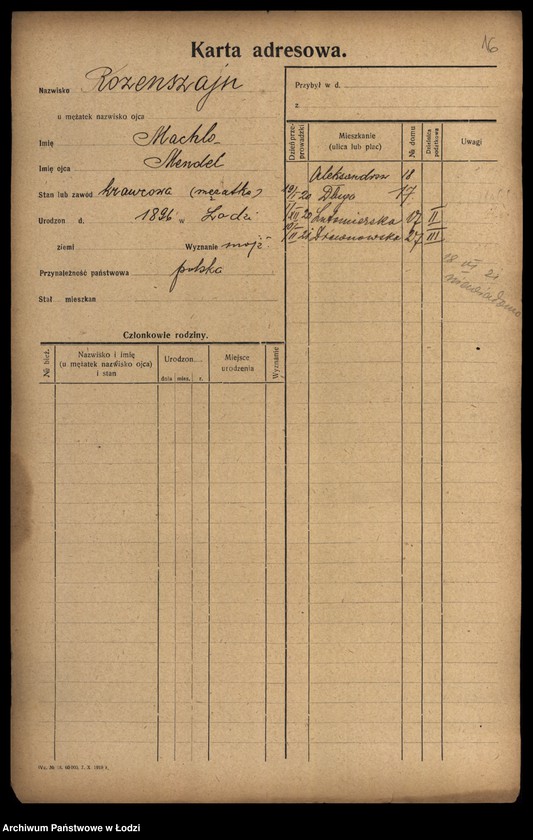 16
Karta adresowa.
Nazwisko Rozenszajn
u mężatek nazwisko ojca
Imię Machla
Imię ojca Mendel
Stan lub zawód krawcowa (mężatka)
Urodzon d. 1896 w Łodzi
ziemi Wyznanie mojż
Przynależność państwowa polska
Stał. mieszkan
Członkowie rodziny.
№ bież.
Nazwisko i imię
(u mężatek nazwisko ojca)
i stan
Urodzon
dnia mies. r.
Miejsce
urodzenia
Wyznanie
Przybył w d.
z
Dzień prze-
prowadzki
Mieszkanie
(ulica lub plac)
№ domu
Dzielnica
podatkowa
Uwagi
Aleksandrow 18
20 Długa 17
20 Lutomierska 07 II
21 27 III
18 VII 21
niewiadomo
Archiwum Państwowe w Łodzi